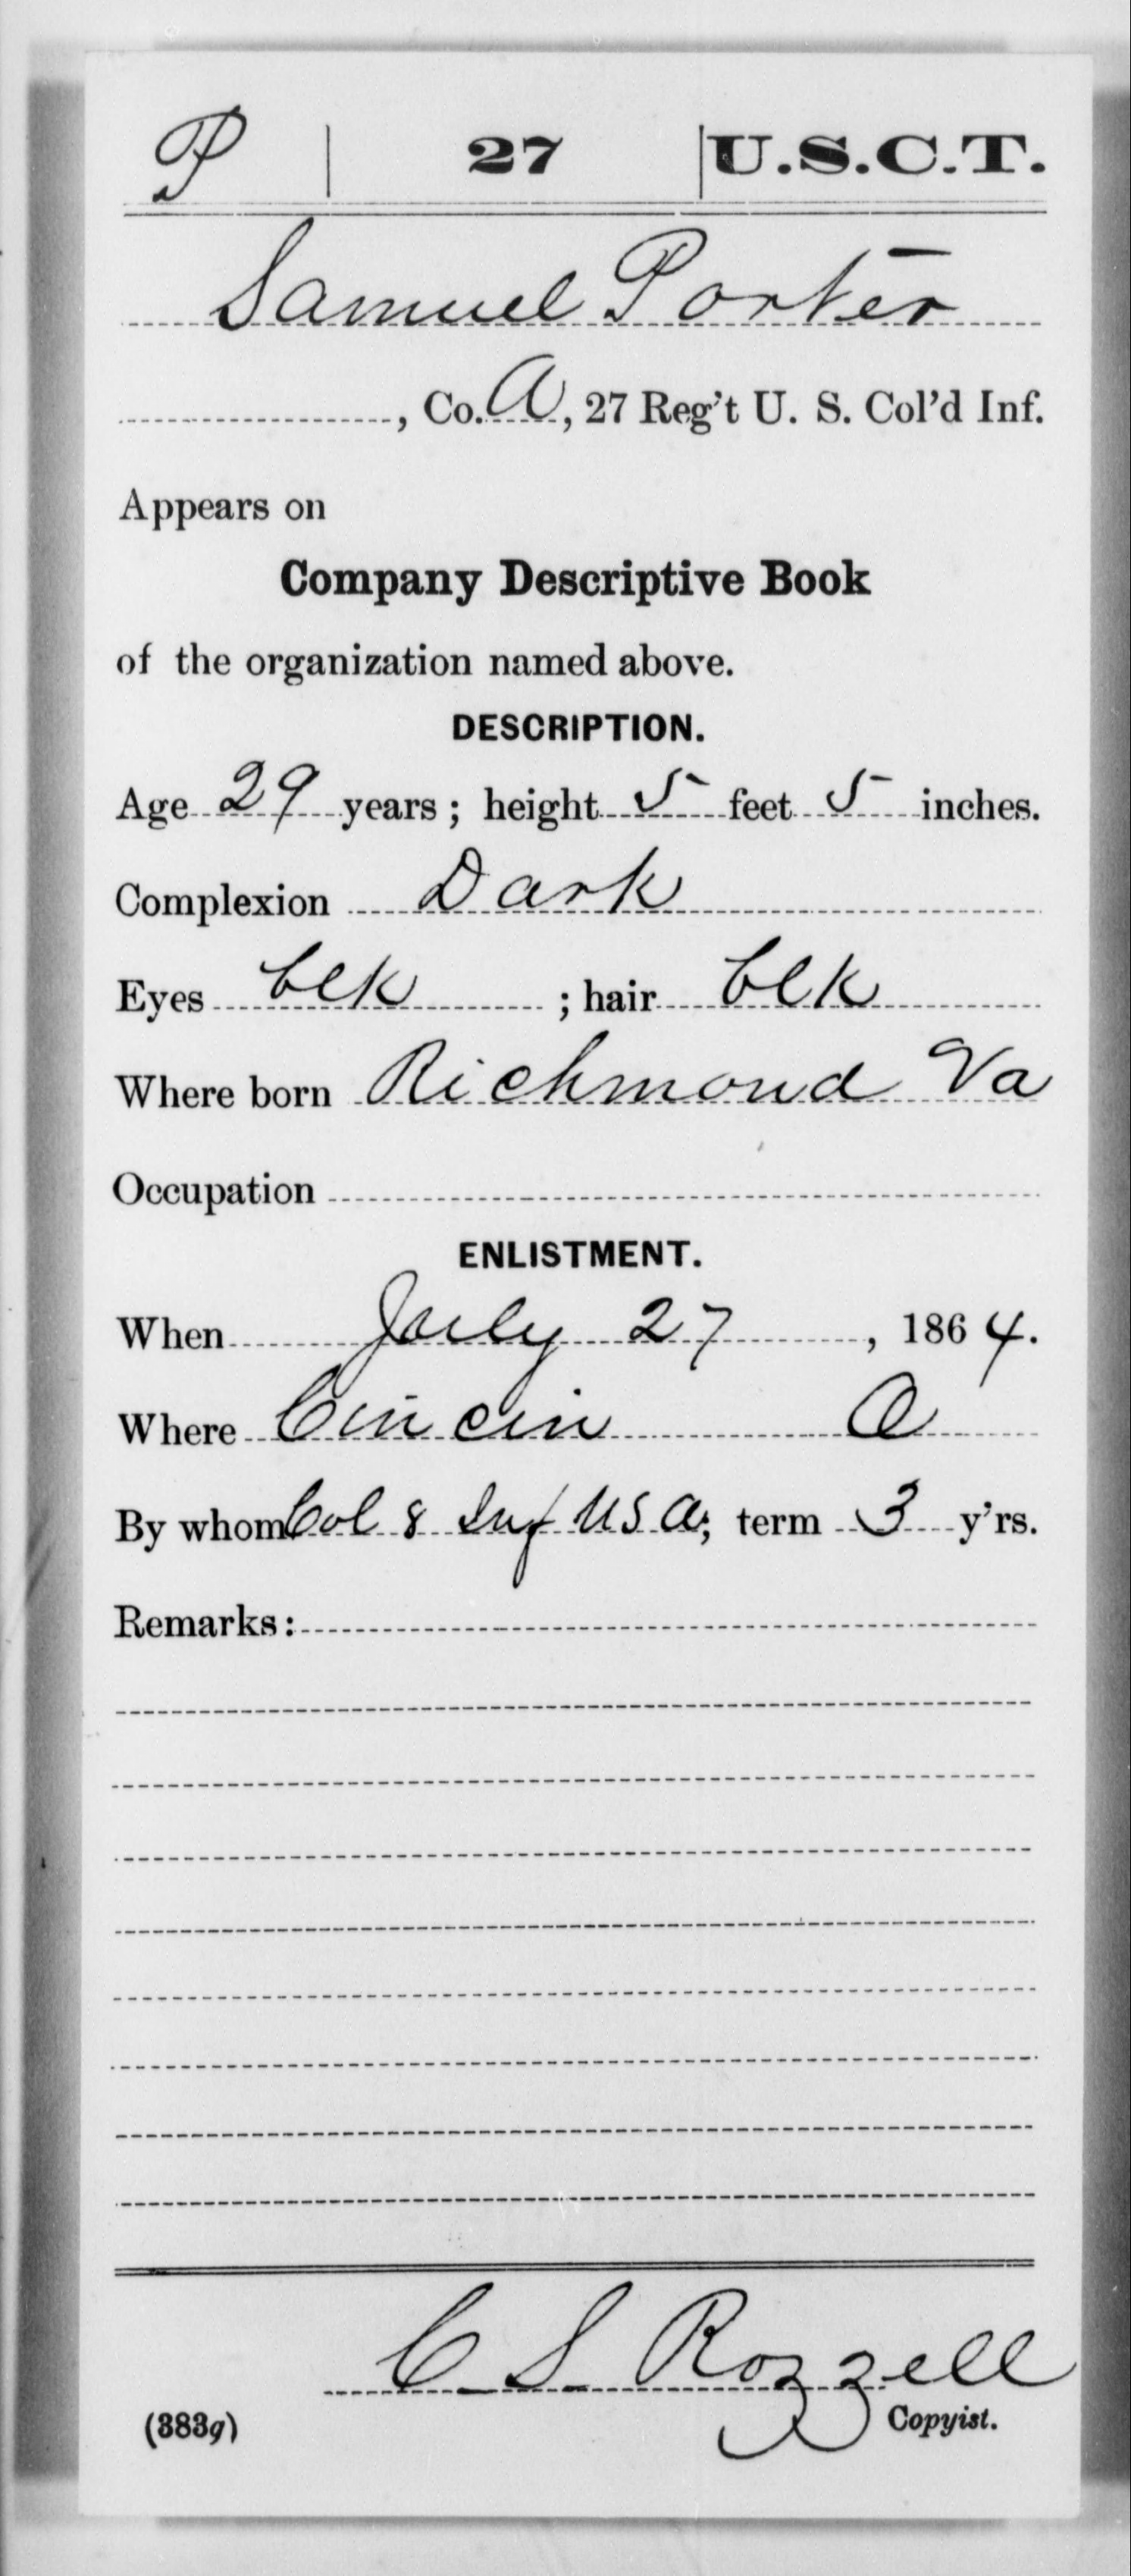 P | 27 | U.S.C.T.
Samuel Porter
, Co. A, 27 Reg't U. S. Col'd Inf.
Appears on
Company Descriptive Book
of the organization named above.
DESCRIPTION.
Age 29 years; height 5 feet 5 inches.
Complexion Dark
Eyes blk ; hair blk
Where born Richmond Va
Occupation
ENLISTMENT.
When July 27, 1864.
Where Cincin O
By whom Col 8 Inf USA; term 3 y'rs.
Remarks:
C S Rozzell
(383g) Copyist.